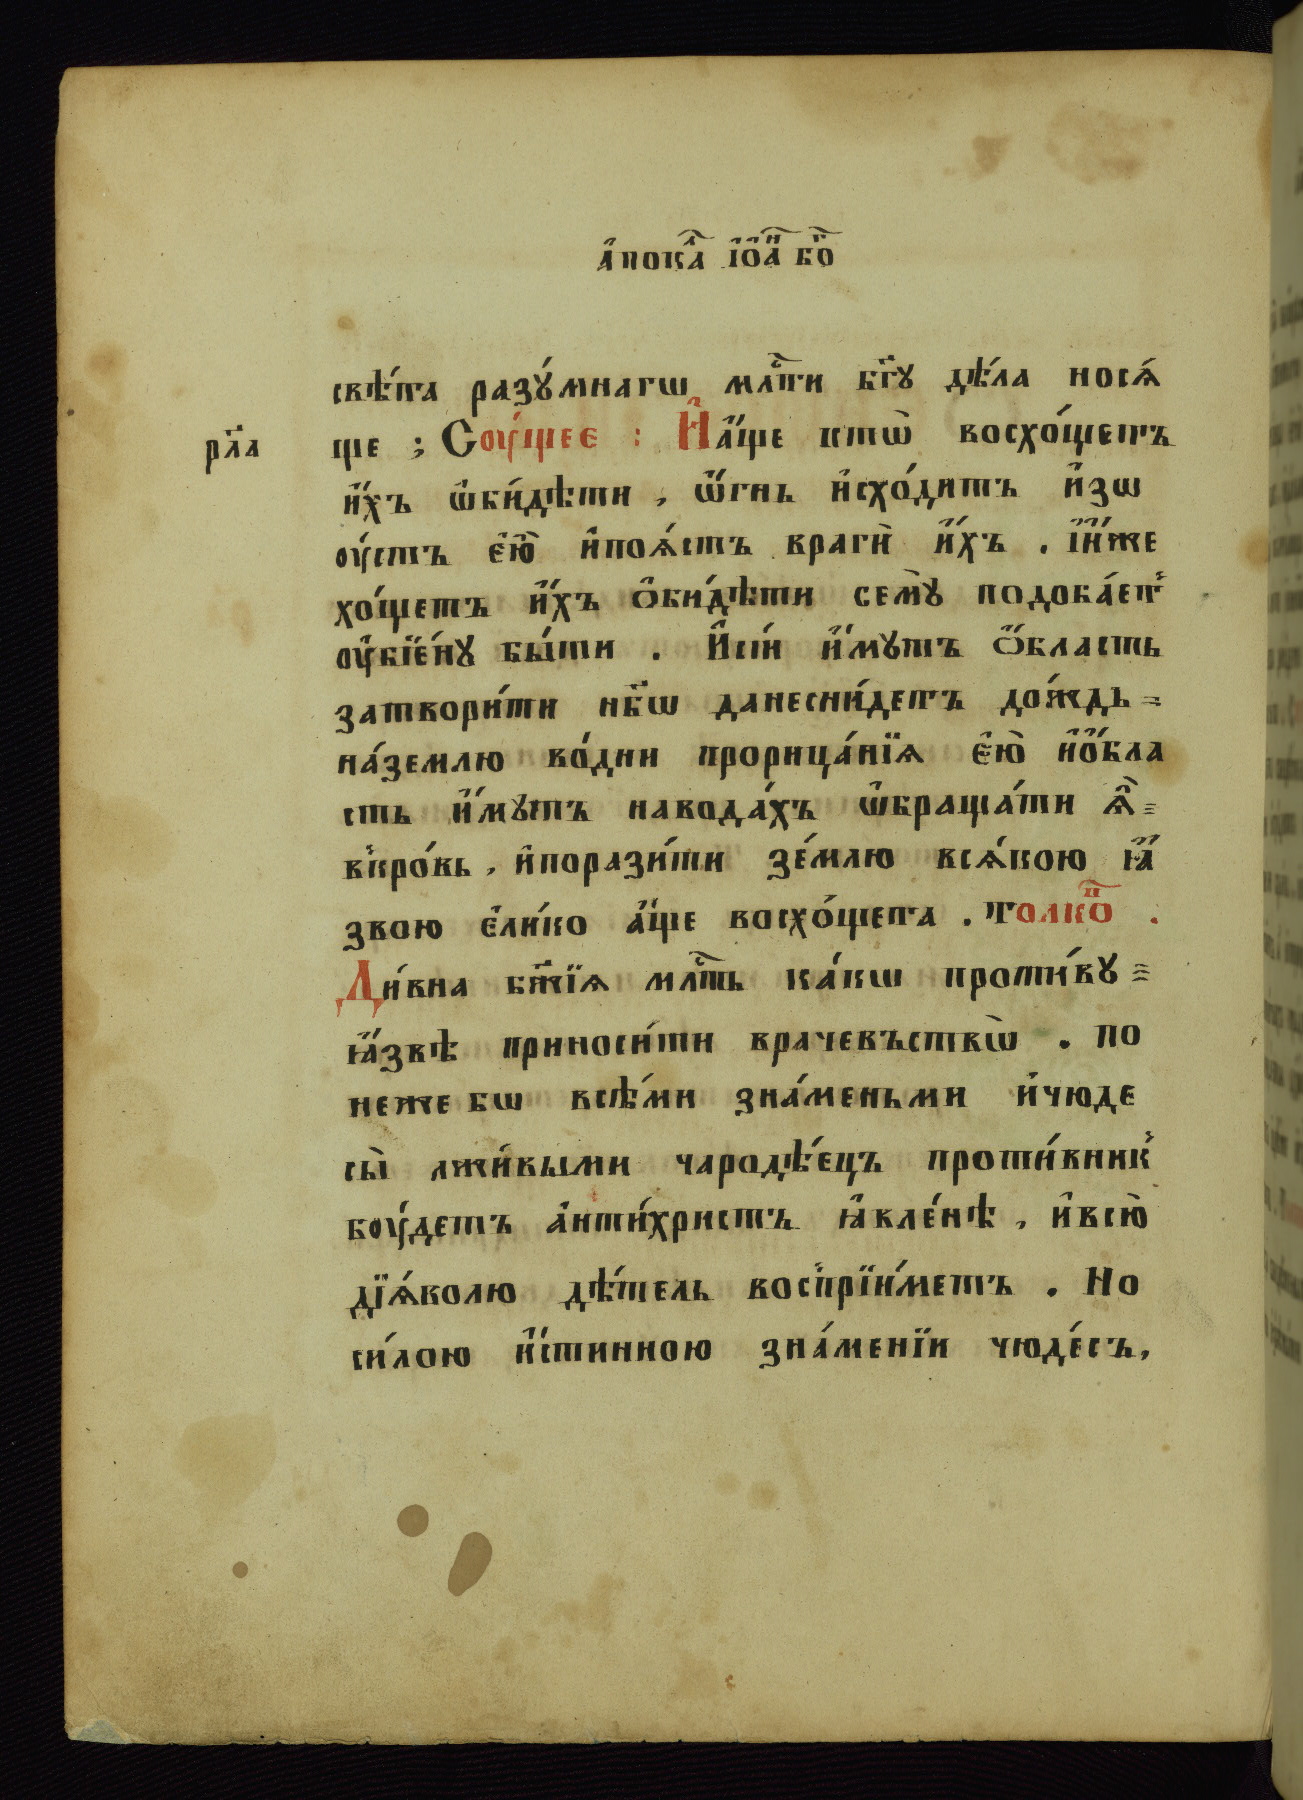 а҆пока́л і҆ѡ҆́ан бг҃о
свѣ́та разꙋ́мнагѡ млⷭ҇ти бг҃ꙋ дѣ́ла носѧ́
рл҃а ще ; Соу́щее : И҆а҆́ще ктѡ̀ восхо́щетъ
и҆́хъ ѡ҆би́дѣти , ѡ҆́гнь и҆схо́дитъ и҆зѡ
оу́стъ є҆ю̀ и҆поѧ́стъ врагѝ и҆́хъ . і҆и҆́же
хо́щетъ и҆́хъ ѻ҆би́дѣти семꙋ̀ подоба́етъ
оу҆бїе́нꙋ бы́ти . И҆сі́и и҆́мꙋтъ ѻ҆́бласть
затвори́ти нб҃ѡ данесни́детъ до́ждь =
на́землю во́дни прорица́нїѧ є҆ю̀ и҆ѻ҆́бла
сть и҆́мꙋтъ навода́хъ ѡ҆браща́ти ѧ҆̀ =
вкро́вь , и҆порази́ти зе́млю всѧ́кою ꙗ҆́
звою є҆ли́ко а҆́ще восхо́щета . Толко́в .
Ди́вна бж҃їѧ млⷭ҇ть ка́кѡ проти́вꙋ =
ꙗ҆́звѣ приноси́ти врачевъствѡ̀ . по
неже бѡ всѣ́ми зна́меньми и҆чюде
сы̀ лжи́выми чародѣ́ецъ проти́вник
боу́детъ а҆нти́христъ ꙗ҆вле́нѣ , и҆всю̀
дїѧ́волю дѣ́тель воспрїи́метъ . Но
си́лою и҆́стинною зна́менїи чюде́съ ,